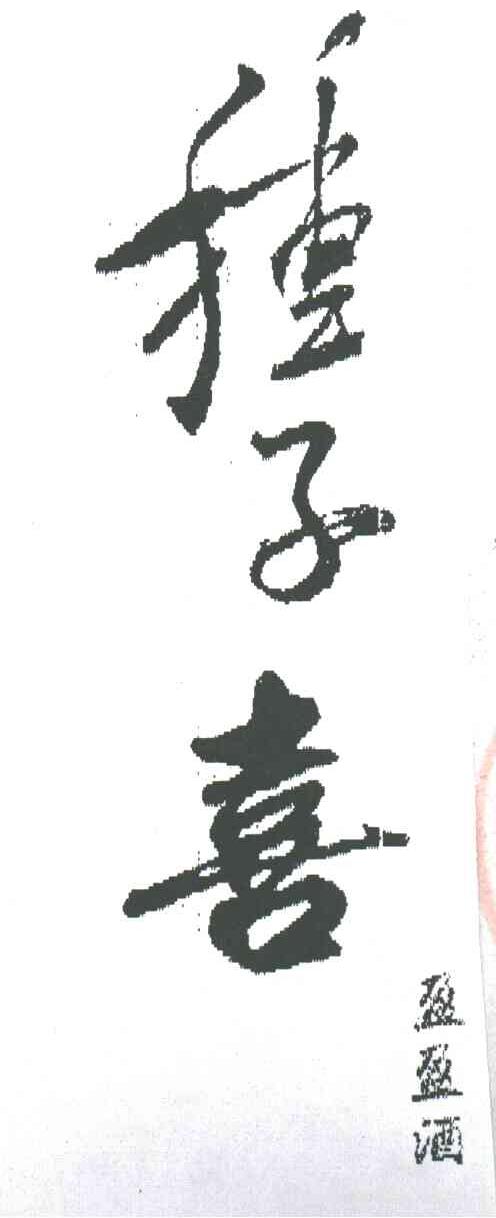 種子喜
盈盈酒